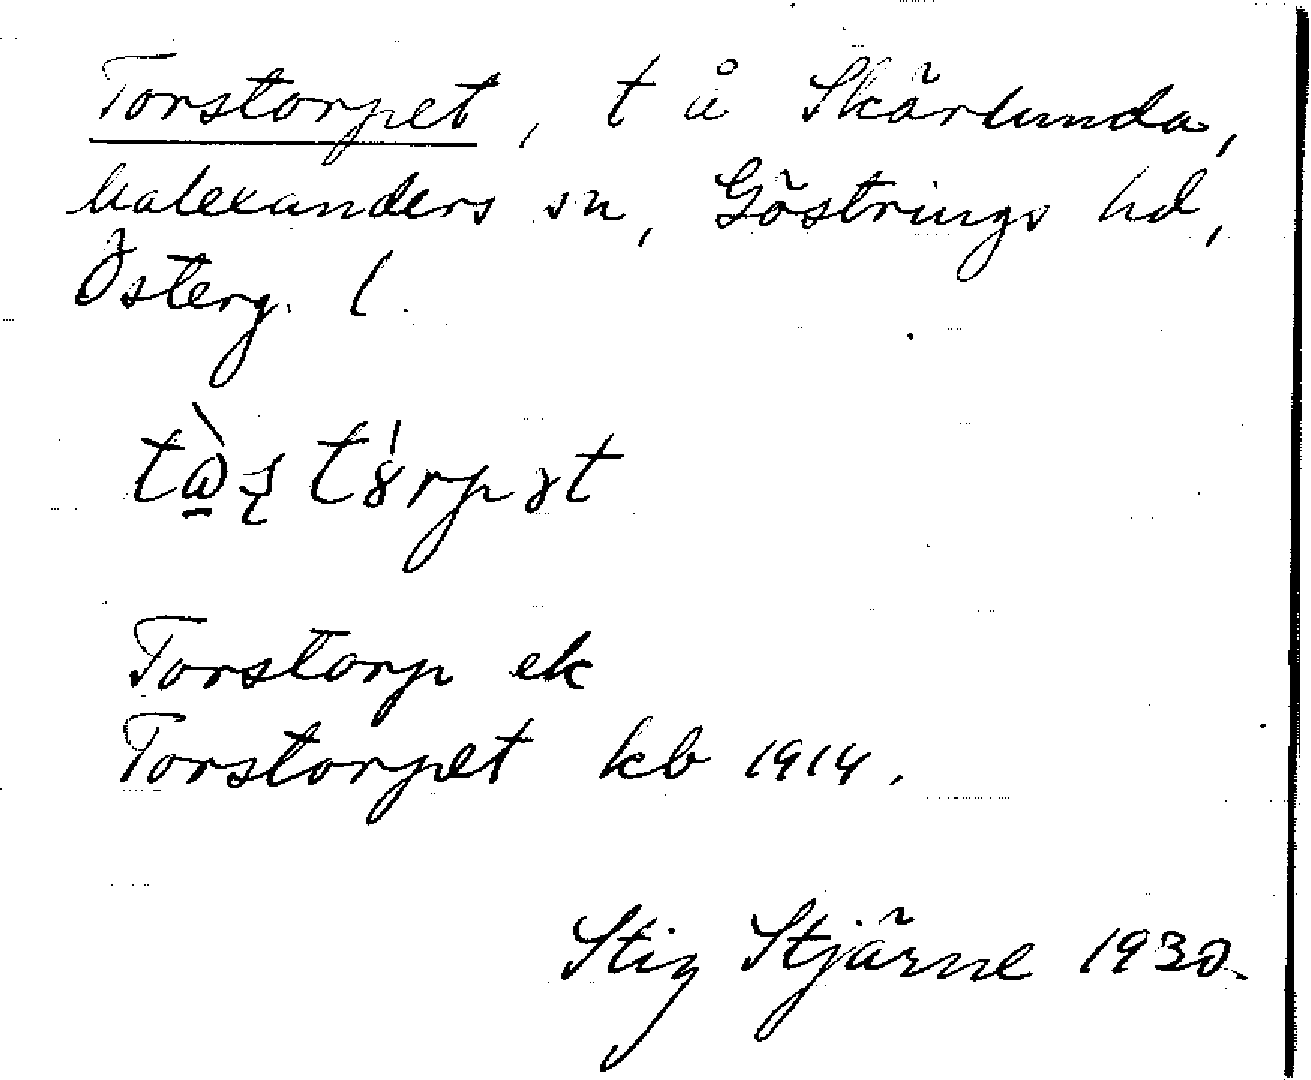 Torstorpet, t å Skärlunda,
Malexanders sn, Göstrings hd,
Österg. l.
Torstorp ek
Torstorpet kb 1914.
Stig Stjärne 1930.